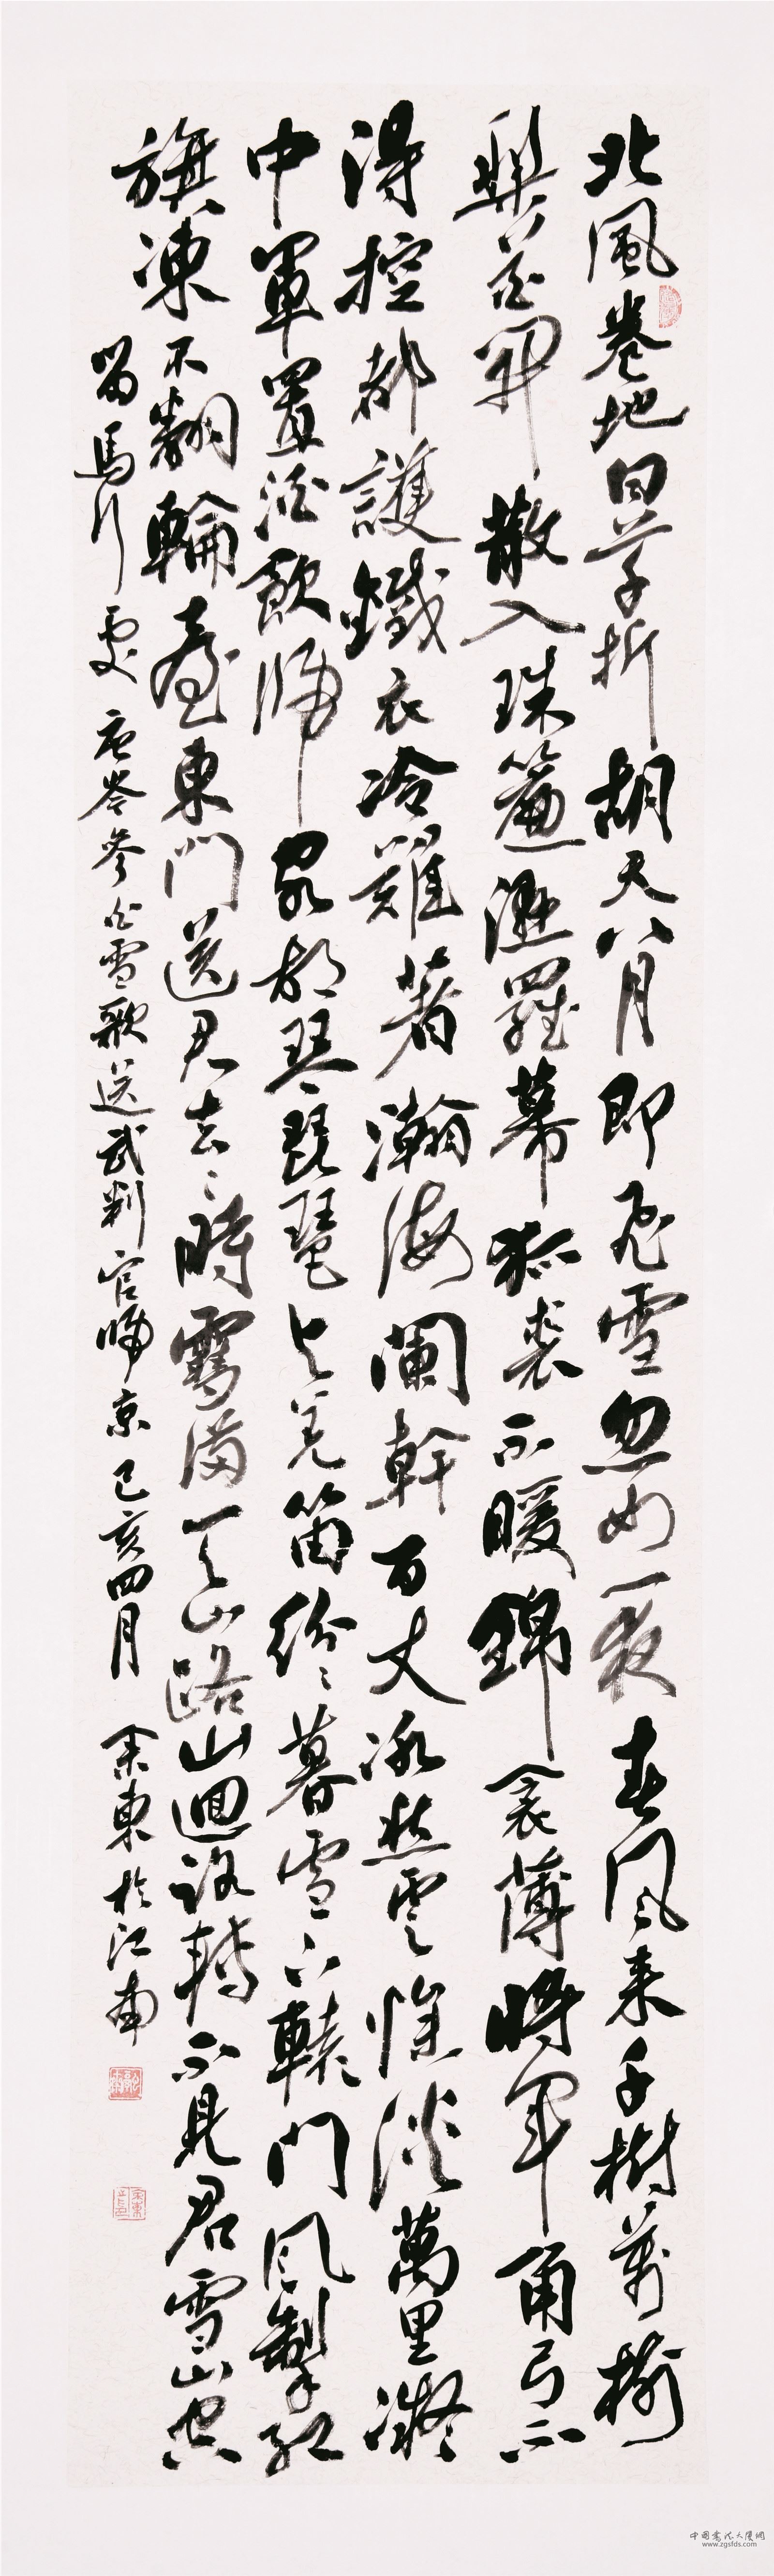 北風卷地白草折胡天八月即飛雪忽如一夜春風來千樹萬樹
梨花開散入珠簾濕羅幕狐裘不暖錦衾薄將軍角弓不
得控都護鐵衣冷難著瀚海闌幹百丈冰愁雲慘淡萬里凝
中軍置酒飲歸客胡琴琵琶與羌笛紛々暮雪下轅門風掣紅
旗凍不翻輪臺東門送君去々時雪滿天山路山迴路轉不見君雪山空
留馬行處 唐岑參白雪歌送武判官歸京 己亥四月 余東於江南
中国書法大厦網
www.zgsfds.com